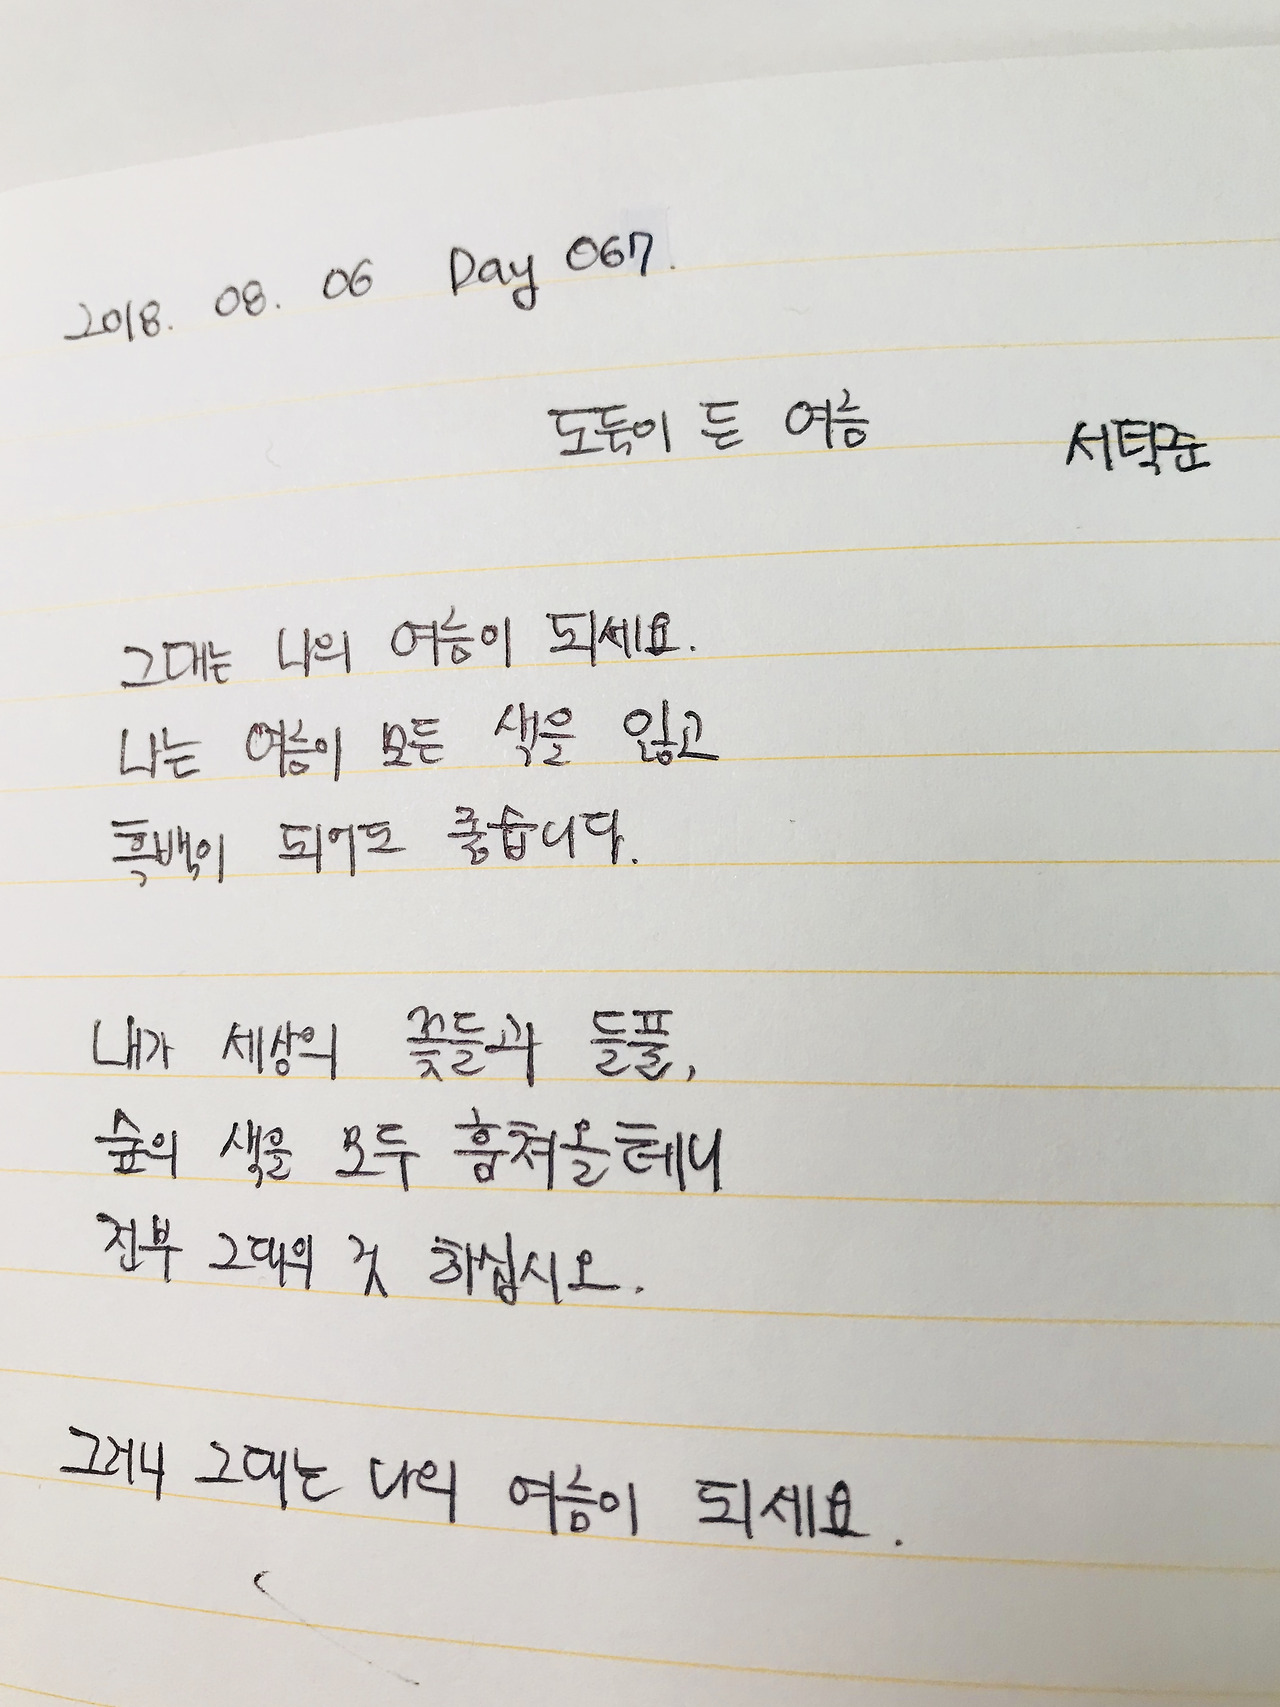 2018. 08. 06 Day 067.
도둑이 든 여름 서덕준
그대는 나의 여름이 되세요.
나는 여름이 모든 색을 잃고
흑백이 되어도 좋습니다.
내가 세상의 꽃들과 들풀,
숲의 색을 모두 훔쳐올테니
전부 그대의 것 하십시오.
그러니 그대는 나의 여름이 되세요.